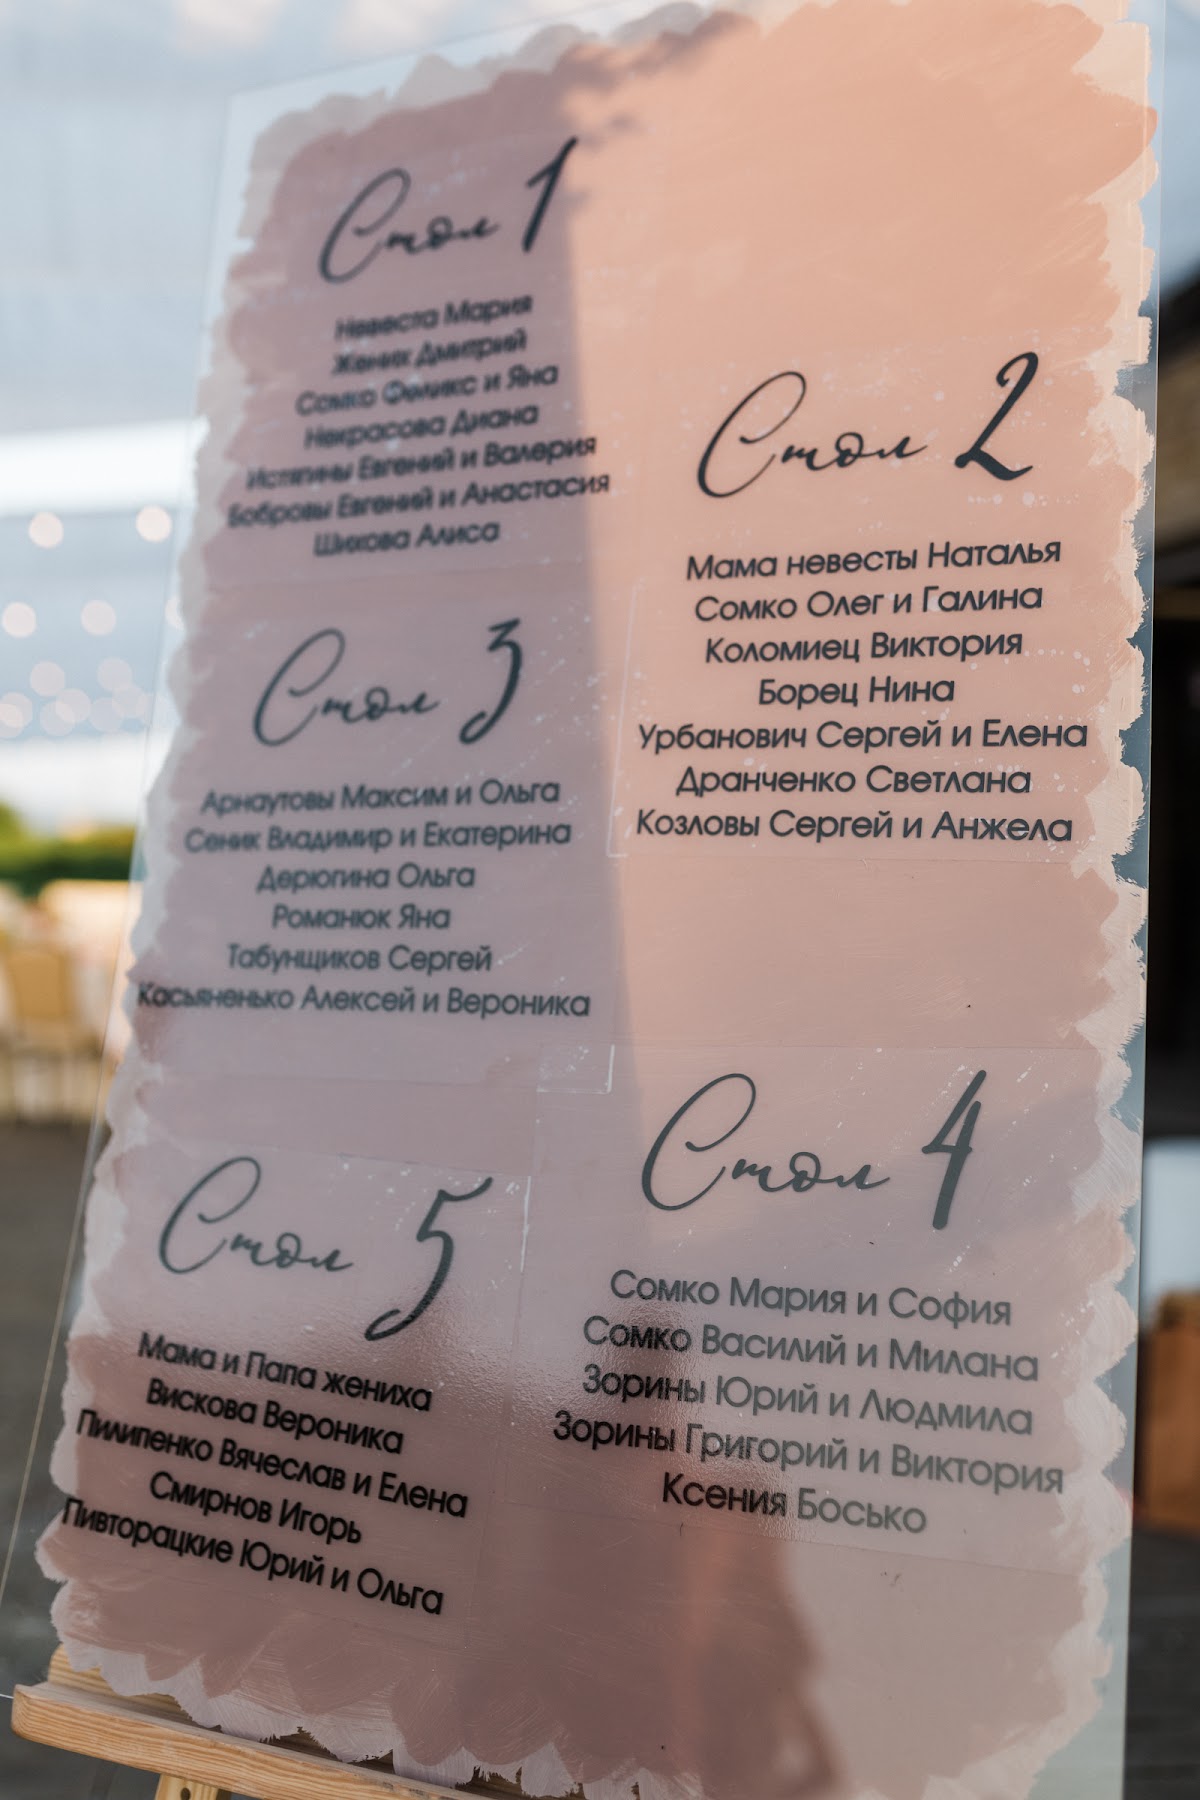 Стол 1
Невеста Мария
Жених Дмитрий
Сомко Феликс и Яна
Некрасова Диана
Истягины Евгений и Валерия
Бобровы Евгений и Анастасия
Шихова Алиса
Стол 2
Мама невесты Наталья
Сомко Олег и Галина
Коломиец Виктория
Борец Нина
Урбанович Сергей и Елена
Дранченко Светлана
Козловы Сергей и Анжела
Стол 3
Арнаутовы Максим и Ольга
Сеник Владимир и Екатерина
Дерюгина Ольга
Романюк Яна
Табунщиков Сергей
Касьяненько Алексей и Вероника
Стол 4
Сомко Мария и София
Сомко Василий и Милана
Зорины Юрий и Людмила
Зорины Григорий и Виктория
Ксения Босько
Стол 5
Мама и Папа жениха
Вискова Вероника
Пилипенко Вячеслав и Елена
Смирнов Игорь
Пивторацкие Юрий и Ольга